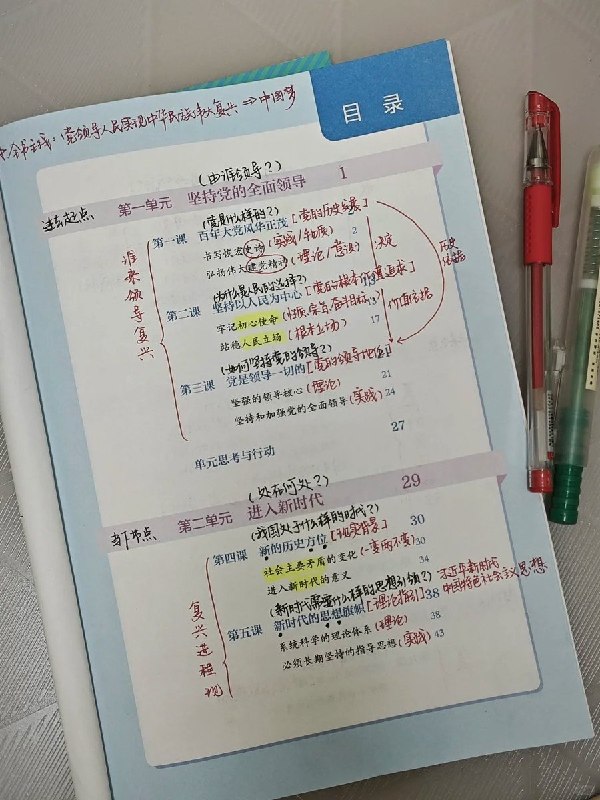 目 录
全书主线：党领导人民实现中华民族伟大复兴⇒中国梦
(由谁领导？)
第一单元 坚持党的全面领导 1
谁来领导复兴
(党是什么样的？)
第一课 百年大党风华正茂 [党的历史发展]
书写恢宏史诗 (实践/物质) 2
弘扬伟大建党精神 (理论/意识) 决定
历史依据
第二课 坚持以人民为中心
牢记初心使命 (性质、宗旨、奋斗目标)
价值依据
站稳人民立场 (根本立场) 17
(如何坚持党的领导？)
第三课 党是领导一切的 [党的领导地位]
坚强的领导核心 (理论) 21
坚持和加强党的全面领导 (实践) 24
单元思考与行动 27
(处在何处？)
当下节点 第二单元 进入新时代 29
复兴进程现
(我国处于什么样的时代？)
第四课 新的历史方位 [现实背景] 30
社会主要矛盾的变化 (一变两不变) 30
进入新时代的意义 34
(新时代需要什么样的思想引领？)
习近平新时代
中国特色社会主义思想
第五课 新时代的思想旗帜 [理论指引] 38
系统科学的理论体系 (理论) 38
必须长期坚持的指导思想 (实践) 43